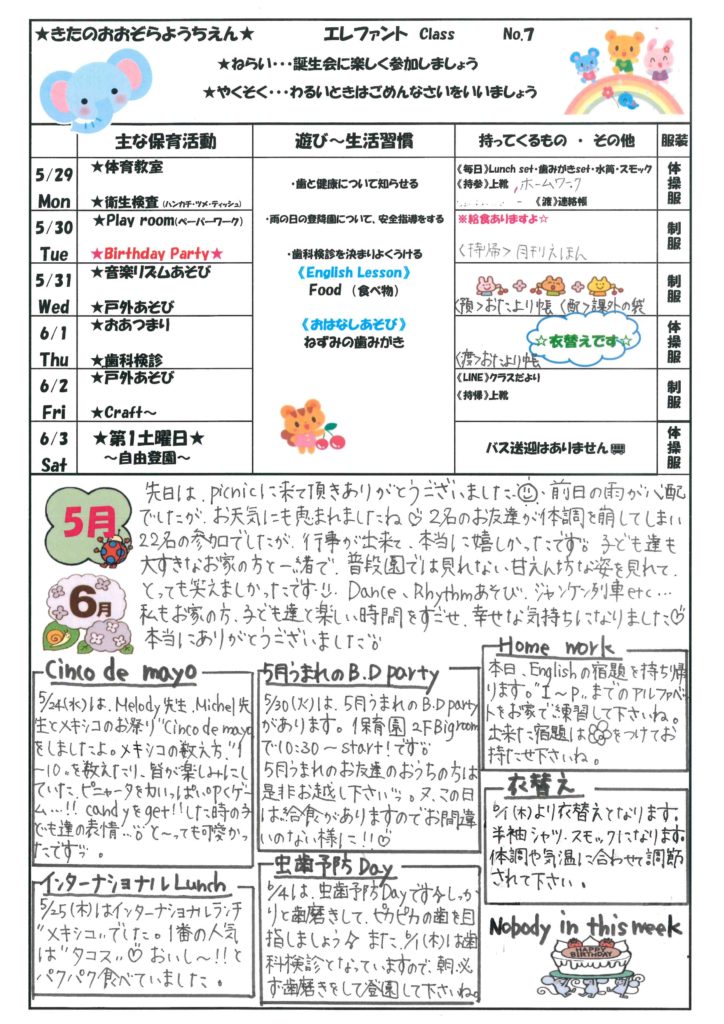 ★きたのおおぞらようちえん★ エレファント Class No.7
★ねらい・・・誕生会に楽しく参加しましょう
★やくそく・・・わるいときはごめんなさいをいいましょう
主な保育活動 遊び～生活習慣 持ってくるもの ・ その他 服装
5/29
Mon
★体育教室
★衛生検査(ハンカチ・ツメ・ティッシュ)
・歯と健康について知らせる
《毎日》Lunch set・歯みがきset・水筒・スモック
《持参》上靴、ホームワーク
《渡》連絡帳
体操服
5/30
Tue
★Play room(ペーパーワーク)
★Birthday Party★
・雨の日の登降園について、安全指導をする
・歯科検診を決まりよくうける
※給食ありますよ☆
<持帰>月刊えほん
制服
5/31
Wed
★音楽リズムあそび
★戸外あそび
《English Lesson》
Food (食べ物)
<預>おたより帳 <配>課外の袋
制服
6/1
Thu
★おあつまり
★歯科検診
《おはなしあそび》
ねずみの歯みがき
☆衣替えです☆
<渡>おたより帳
体操服
6/2
Fri
★戸外あそび
★Craft～
《LINE》クラスだより
《持帰》上靴
制服
6/3
Sat
★第1土曜日★
～自由登園～
バス送迎はありません
体操服
5月
6月
先日は、picnicに来て頂きありがとうございました。前日の雨が心配
でしたが、お天気にも恵まれましたね♡2名のお友達が体調を崩してしまい
22名の参加でしたが、行事が出来て、本当に嬉しかったです。子ども達も
大すきなお家の方と一緒で、普段園では見れない甘えん坊な姿を見れて、
とっても笑えましかったです!! Dance、Rhythmあそび、ジャンケン列車etc...
私もお家の方、子ども達と楽しい時間をすごせ、幸せな気持ちになりました♡
本当にありがとうございました。
Cinco de mayo
5/24(水)は、Melody先生、Michel先
生とメキシコのお祭り"Cinco de mayo
をしましたよ。メキシコの数え方、"1
～10"を数えたり、皆が楽しみにし
ていた、ピニャータを力いっぱいopくゲ
ーム...!! candyをget!!した時の子
ども達の表情...。と～っても可愛かっ
たですッ。
インターナショナルLunch
5/25(木)はインターナショナルランチ
"メキシコ"でした。1番の人気
は"タコス"♡おいし～!!と
パクパク食べていました。
5月うまれのB.D party
5/30(火)は、5月うまれのB.D party
があります。保育園2F Big room
で10:30～start!です。
5月うまれのお友達のおうちの方は
是非お越し下さいッ。又、この日
は給食がありますのでお間違
いのない様に!!♡
虫歯予防Day
6/4は、虫歯予防Dayです。しっか
りと歯磨きして、ピカピカの歯を目
指しましょう☆また、6/1(木)は歯
科検診となっていますので、朝、必
ず歯磨きをして登園して下さいね。
Home work
本日、Englishの宿題を持ち帰
ります。"I～P"までのアルファベッ
トをお家で練習して下さいね。
出来た宿題はをつけてお
持たせ下さいね。
衣替え
6/1(木)より衣替えとなります。
半袖シャツ・スモックになります。
体調や気温に合わせて調節
されて下さい。
Nobody in this week
HAPPY
BIRTHDAY